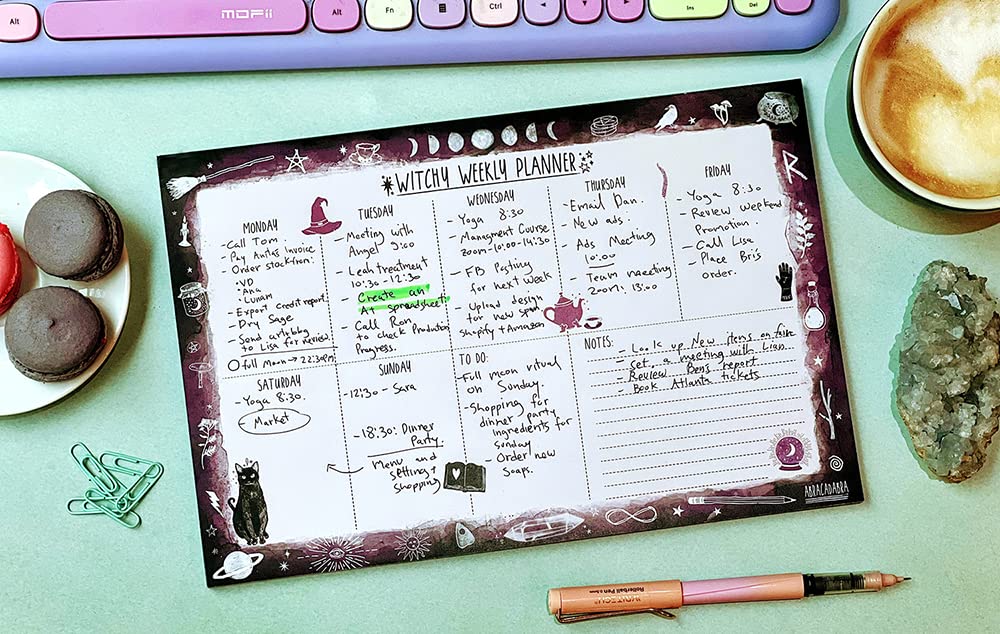 Alt
MOFii
Alt
Fn
Ctrl
Ins
Del
WITCHY WEEKLY PLANNER
MONDAY
- Call Tom.
- Pay Anitas invoice
- Order stock from:
• VD
• Ana
- Export credit report
- Dry Sage
- Send
to Lisa for review.
Full Moon → 22:30pm
TUESDAY
- Meeting with
Angel 9:00
- Leah treatment
10:30 - 12:30
- Create an
A4 spreadsheet
- Call Ron
to check Production
Progress.
WEDNESDAY
- Yoga 8:30
- Managment Course
zoom - 10:00 - 14:30
- FB Posting
for next week
- Upload design
for new
Shopify + Amazon
THURSDAY
- Email Dan.
- New ads.
- Ads Meeting
10:00
- Team meeting
zoom: 13:00
FRIDAY
- Yoga 8:30
- Review weekend
Promotion.
- Call Lisa
- Place Bri's
order.
SATURDAY
- Yoga 8:30.
- Market
SUNDAY
- 12:30 - Sara
- 18:30: Dinner
Party.
Menu and
setting +
shopping
TO DO:
- Full moon ritual
on Sunday.
- Shopping for
dinner party
ingredients for
sunday
- Order new
soaps.
NOTES:
- Look up New items on
- Set a meeting with Lian.
- Review Ben's report
- Book Atlanta tickets
ABRACADABRA
WRITECH
Rollerball Pen 0.5mm